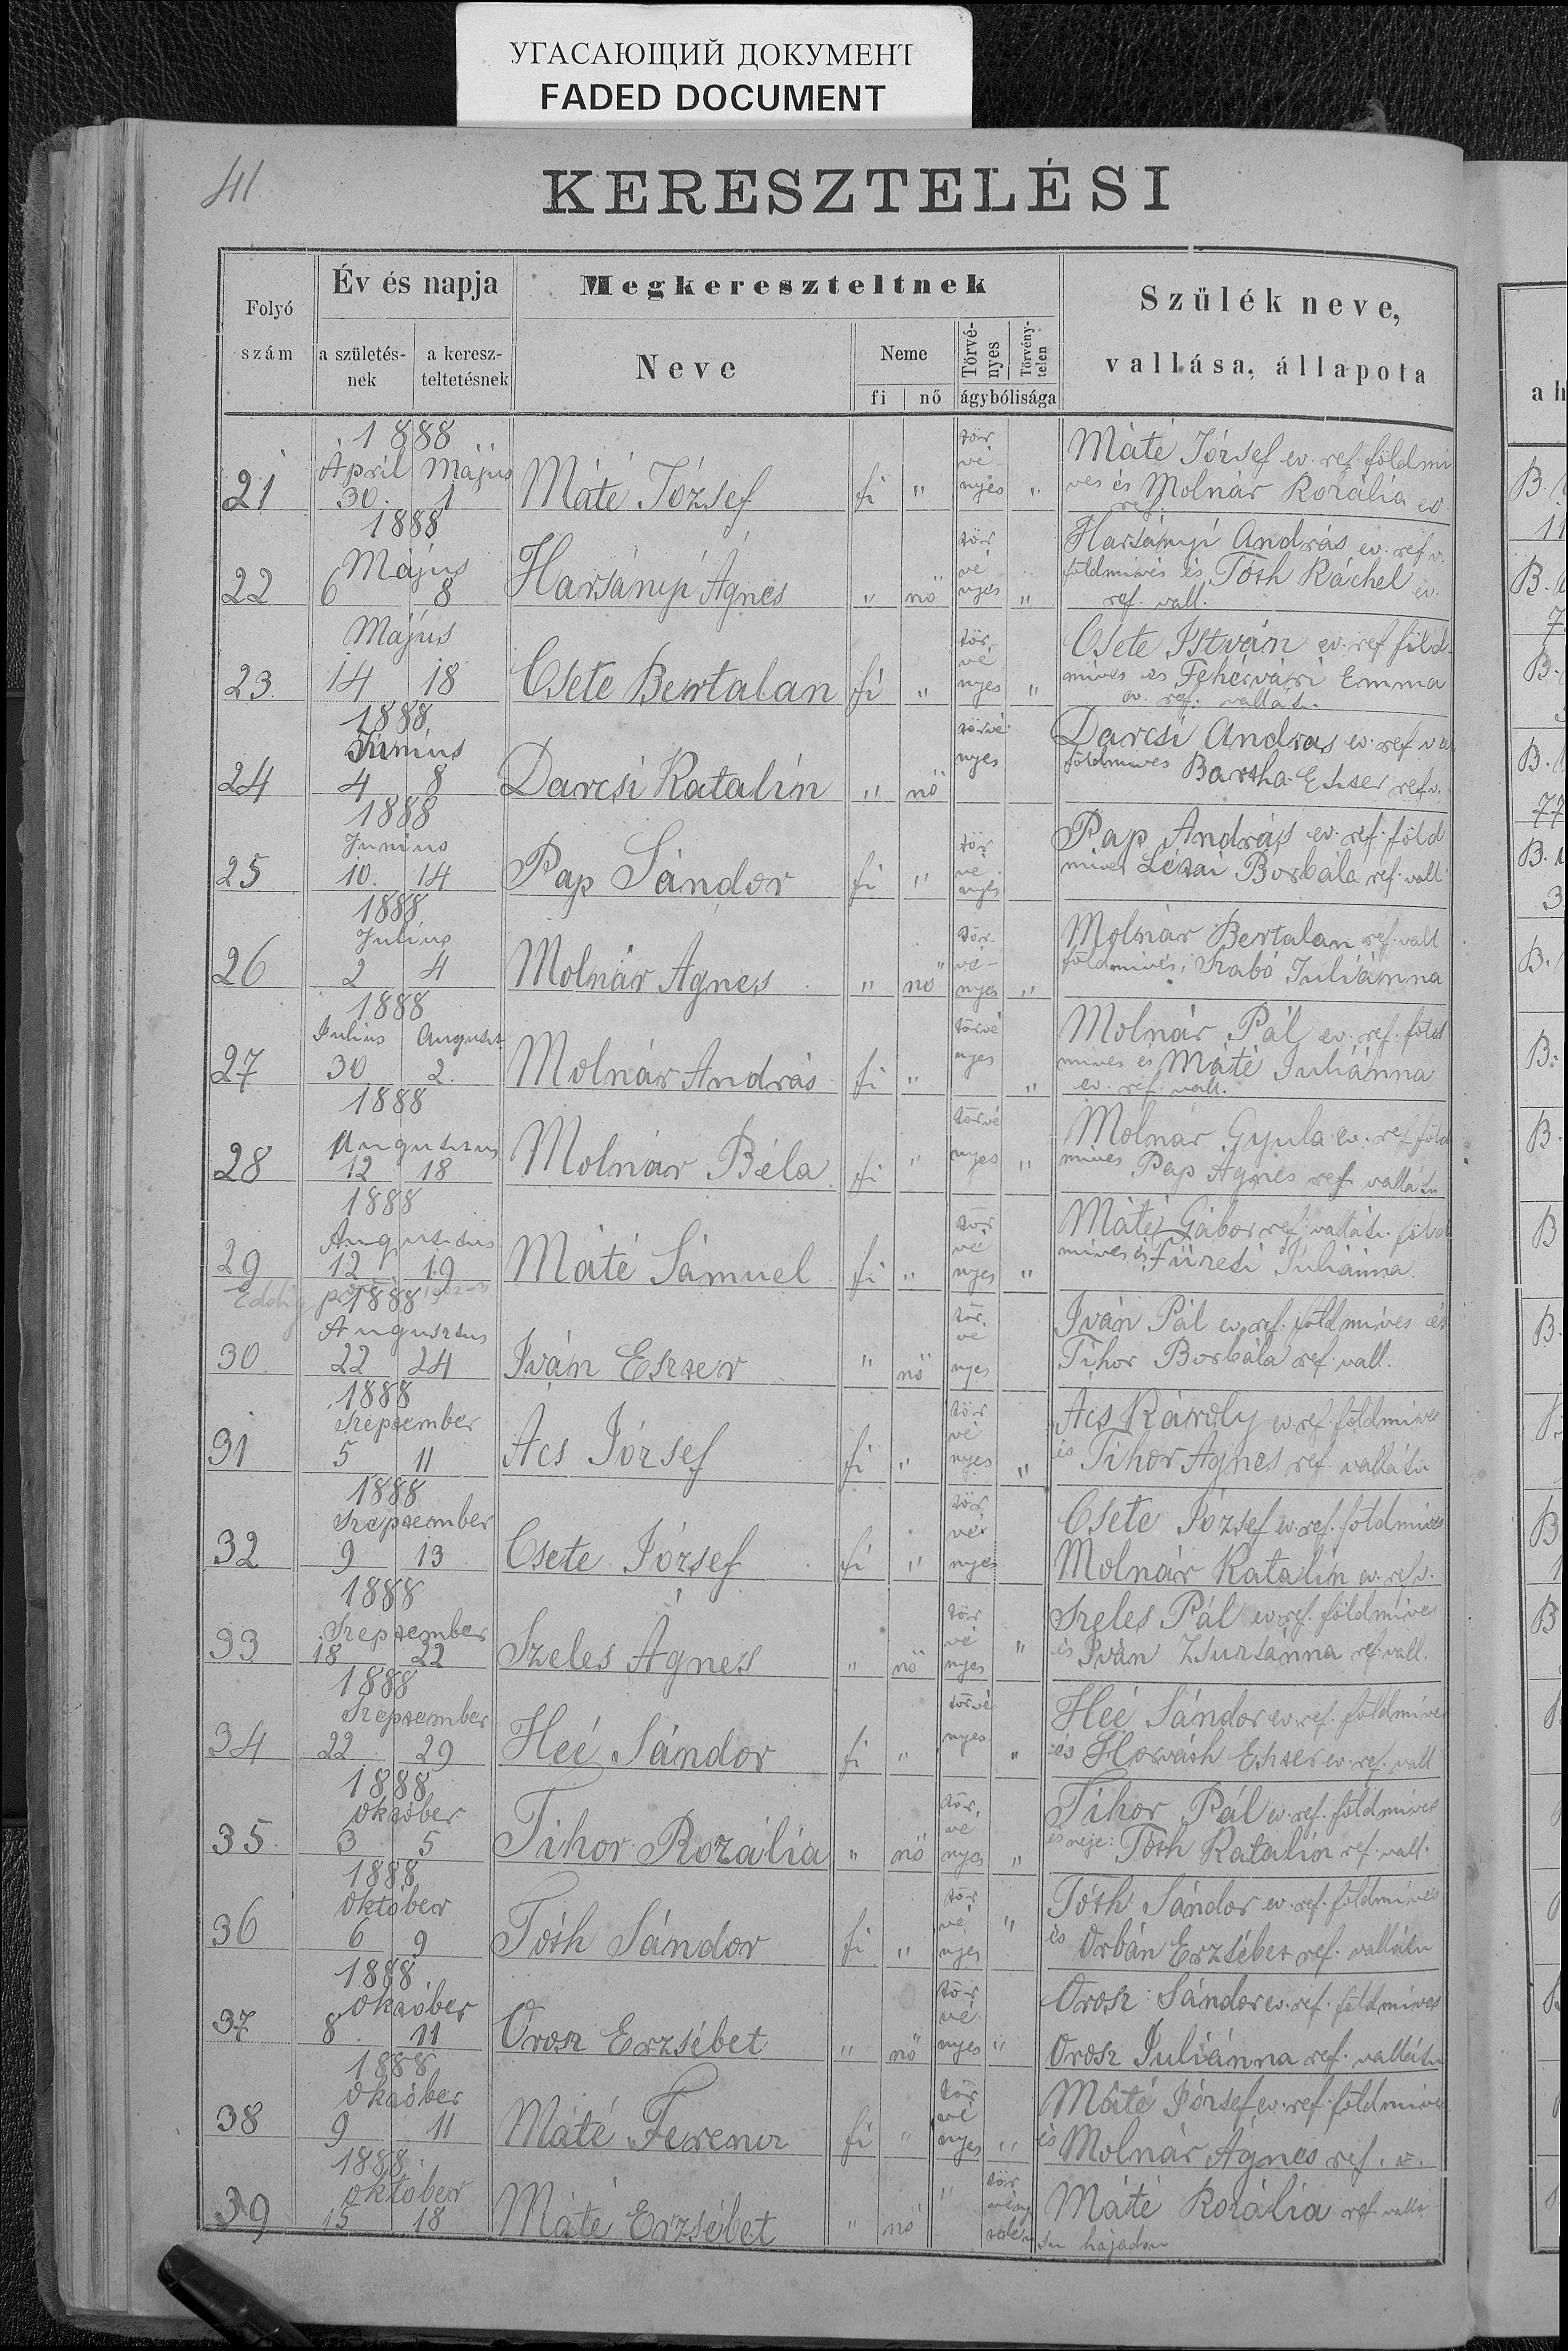 УГАСАЮЩИЙ ДОКУМЕНТ
FADED DOCUMENT
41
KERESZTELÉSI
Folyó szám
Év és napja
a születés-nek
a keresz-teltetésnek
Megkereszteltnek
Neve
Neme
fi
nő
Törvé-nyes
Törvény-telen
ágybólisága
Szülék neve,
vallása, állapota
1888
April Május
21 30. 1 Máté József fi " törvényes "
Máté József ev. ref. földmi
ves és Molnár Rozália ev.
ref.
1888
Május
22 6 8 Harsányi Ágnes " nő törvényes "
Harsányi András ev. ref. v.
földmives és Tóth Ráchel ev.
ref. vall.
Május
23. 14 18 Csete Bertalan fi " törvényes "
Csete István ev. ref. föld-
míves és Fehérvári Emma
ev. ref. vallásu.
1888
Június
24 4 8 Darcsi Katalin " nő törvényes
Darcsi András ev. ref. va
földmives Bartha Eszter ref. v.
1888
Junius
25 10. 14 Pap Sándor fi " törvényes
Pap András ev. ref. föld
míves Lézai Borbála ref. vall
1888
Julius
26 2 4 Molnár Ágnes " nő törvényes "
Molnár Bertalan ref. vall
földmivés, Szabó Juliánna
1888
Julius August
27 30 2. Molnár András fi " törvényes "
Molnár Pál ev. ref. föld
míves és Máté Juliánna
ev. ref. vall.
1888
Augusztus
28 12 18 Molnár Béla fi " törvényes "
Molnár Gyula ev. ref. föld
míves Pap Ágnes ref. vallásu
1888
Augusztus
29 12 19 Máté Sámuel fi " törvényes "
Máté Gábor ref. vallásu. föld
míves és Füredi Juliánna.
Eddig
1888
Augusztus
30 22 24 Iván Eszter " nő törvényes
Iván Pál ev. ref. földmíves és
Tihor Borbála ref. vall.
1888
Szeptember
31 5 11 Ács József fi " törvényes "
Ács Károly ev. ref. földmíves
és Tihor Ágnes ref. vallásu
1888
Szeptember
32 9 13 Csete József fi " törvényes
Csete József ev. ref. földmíves
Molnár Katalin ev. ref. v.
1888
Szeptember
33 18 22 Szeles Ágnes " nő törvényes "
Szeles Pál ev. ref. földmíves
és Iván Zsuzsánna ref. vall.
1888
Szeptember
34 22 29 Heé Sándor fi " törvényes "
Heé Sándor ev. ref. földmíves
és Horváth Eszter ev. ref. vall
1888
október
35. 3 5 Tihor Rozália " nő törvényes "
Tihor Pál ev. ref. földmíves
és neje: Tóth Katalin ref. vall.
1888
október
36 6 9 Tóth Sándor fi " törvényes "
Tóth Sándor ev. ref. földmíves
és Orbán Erzsébet ref. vallásu
1888.
október
37 8 11 Orosz Erzsébet " nő törvényes "
Orosz Sándor ev. ref. földmíves
Orosz Juliánna ref. vallásu
1888
október
38 9 11 Máté Ferencz fi " törvényes "
Máté József ev. ref. földmíves
és Molnár Ágnes ref. v.
1888.
október
39 15 18 Máté Erzsébet " nő " törvénytelen
Máté Rozália ref. vallá
su hajadon